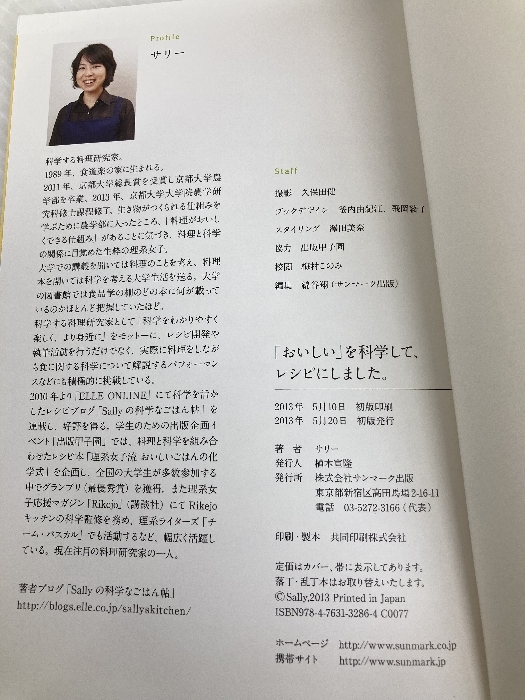 Profile
サリー
科学する料理研究家。
1989年、食道楽の家に生まれる。
2011年、京都大学総長賞を受賞し京都大学農
学部を卒業、2013年、京都大学大学院農学研
究科修士課程修了。生き物がつくられる仕組みを
学ぶために農学部に入ったところ、「料理がおいし
くできる仕組み」があることに気づき、料理と科学
の関係に目覚めた生粋の理系女子。
大学での講義を聞いては料理のことを考え、料理
本を開いては科学を考える大学生活を送る。大学
の図書館では食品学の棚のどの本に何が載って
いるのかほとんど把握していたほど。
科学する料理研究家として「科学をわかりやすく
楽しく、より身近に」をモットーに、レシピ開発や
執筆活動を行うだけでなく、実際に料理をしなが
ら食に関する科学について解説するパフォーマン
スなどにも積極的に挑戦している。
2010年より「ELLE ONLINE」にて科学を活か
したレシピブログ「Sallyの科学なごはん帖」を
連載し、好評を得る。学生のための出版企画イ
ベント「出版甲子園」では、料理と科学を組み合
わせたレシピ本「理系女子流 おいしいごはんの化
学式」を企画し、全国の大学生が多数参加する
中でグランプリ(最優秀賞)を獲得。また理系女
子応援マガジン「Rikejo」(講談社)にてRikejo
キッチンの科学監修を務め、理系ライターズ「チ
ーム・パスカル」でも活動するなど、幅広く活躍し
ている。現在注目の料理研究家の一人。
著者ブログ「Sallyの科学なごはん帖」
http://blogs.elle.co.jp/sallyskitchen/
Staff
撮影 久保田健
ブックデザイン
スタイリング 澤田美奈
協力 出版甲子園
校閲 椎村このみ
編集 (サンマーク出版)
「おいしい」を科学して、
レシピにしました。
2013年 5月10日 初版印刷
2013年 5月20日 初版発行
著 者 サリー
発行人 植木宣隆
発行所 株式会社サンマーク出版
東京都新宿区高田馬場2-16-11
電話 03-5272-3166(代表)
印刷・製本 共同印刷株式会社
定価はカバー、帯に表示してあります。
落丁・乱丁本はお取り替えいたします。
©Sally,2013 Printed in Japan
ISBN978-4-7631-3286-4 C0077
ホームページ http://www.sunmark.co.jp
携帯サイト http://www.sunmark.jp